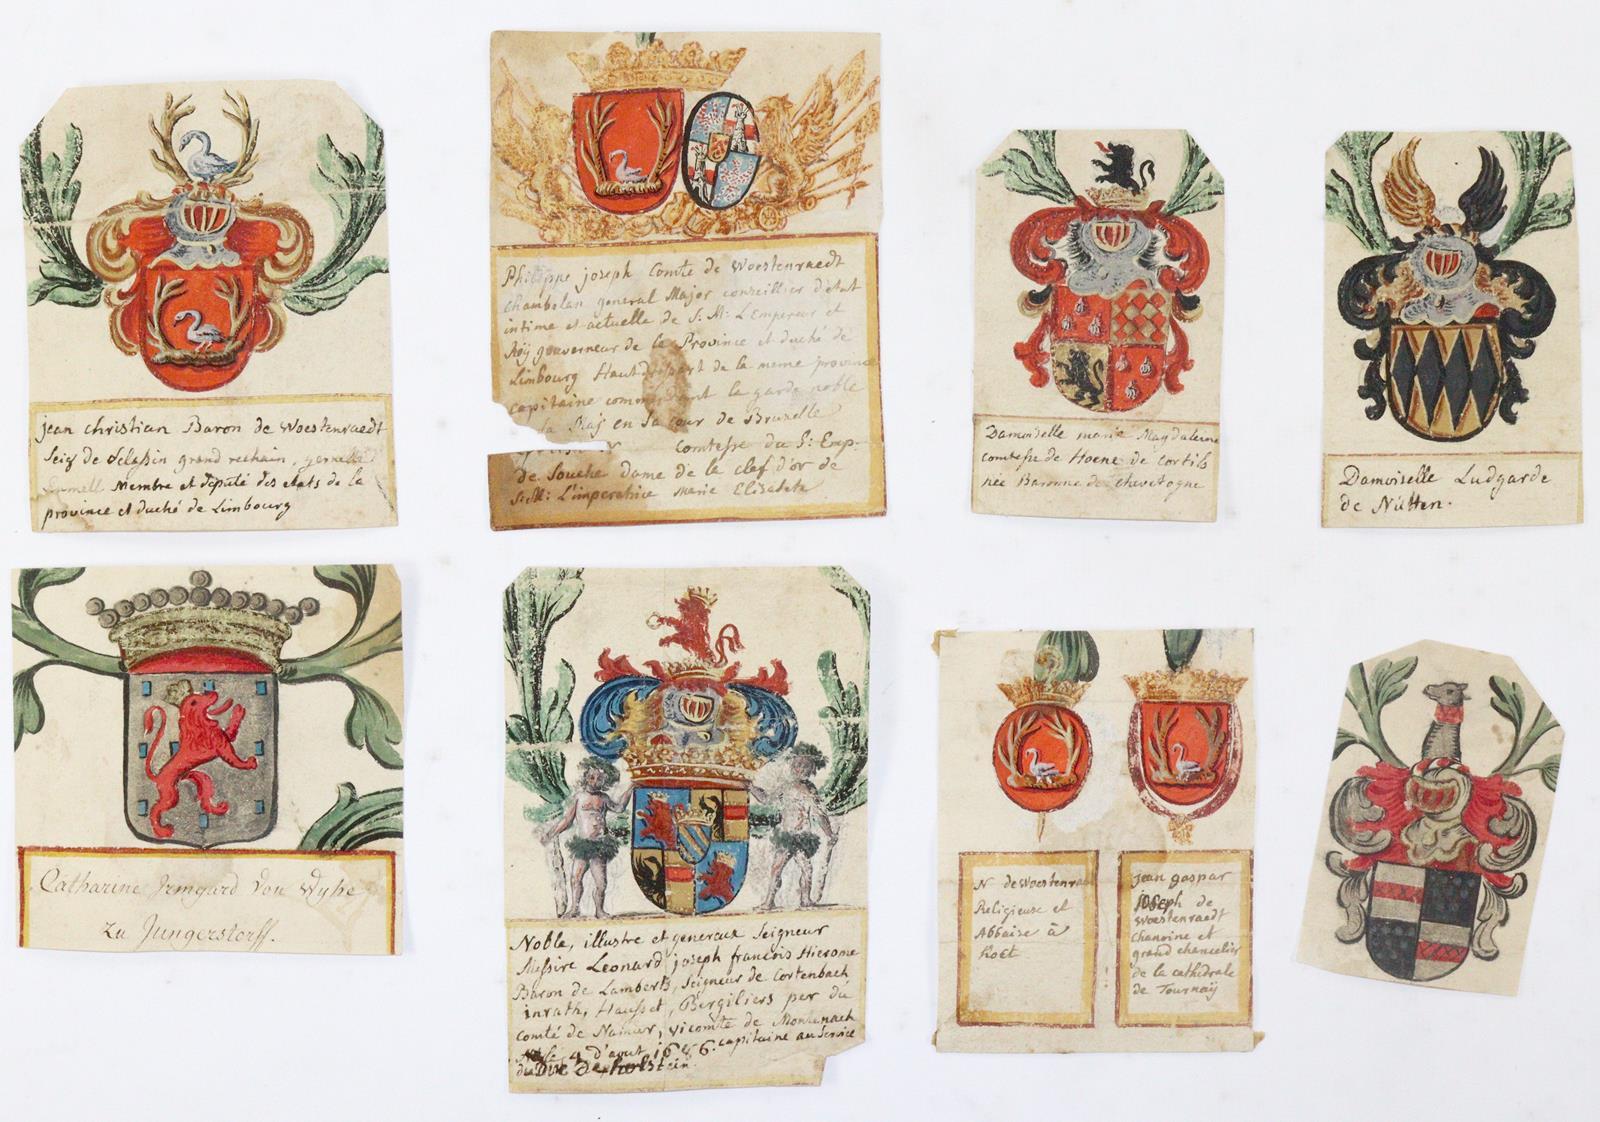 jean christian Baron de Woestenraedt
Seig de Selassin grand rechain,
Membre et deputé des etats de la
province et duché de Limbourg
Philippe joseph Comte de Woestenraedt
Chambelan general Major conseillier d'etat
intime et actuelle de S: M: L'Empereur et
Roÿ gouverneur de la Province et duché de
Limbourg Haut drossart de la meme province
capitaine commandant la garde noble
sa Maj en sa cour de Bruxelle
Comtesse du S: Emp.
de Souche Dame de la clef d'or de
S: M: L'imperatrice marie Elisabete
Damoiselle marie Magdalene
comtesse de Hoene de Cortils
née Baronne de chevetogne
Damoiselle Ludgarde
de Nütten.
Catharine Irmgard von Wyhe
zu Jungerstorff.
Noble, illustre et genereux Seigneur
Messire Leonard joseph francois Hierome
Baron de Lamberts, Seigneur de Cortenbach
inrath, Hausset, Bergiliers per du
comté de Namur, vicomte de Montenach
4 d'aout 1686. capitaine au Service
du Duc de holstein.
N de Woestenra
Religieuse et
Abbaise à
hoct
jean gaspar
joseph de
Woestenraedt
chanoine et
grand chancelier
de la cathedrale
de Tournaÿ